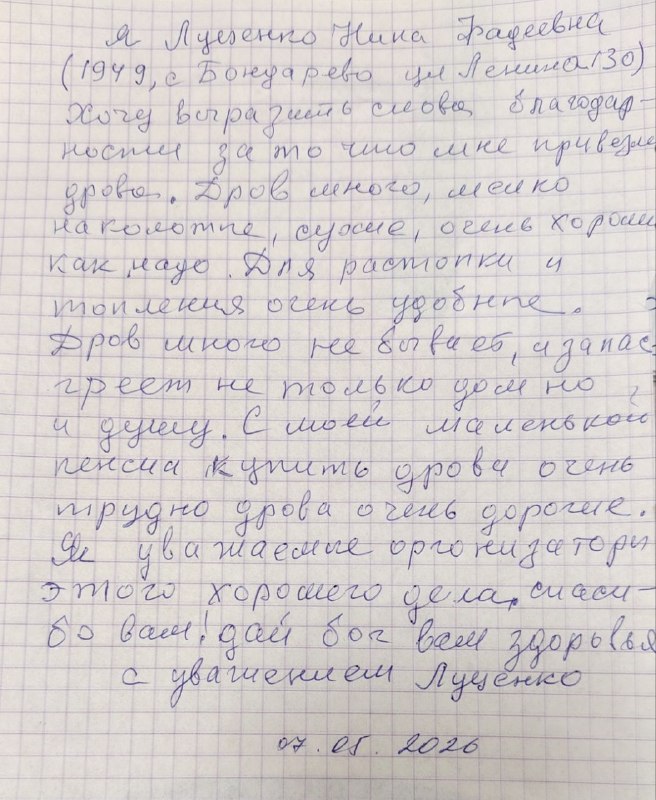 Я Луценко Нина Фадеевна
(1949, с Бондарево ул Ленина 130)
Хочу выразить слова благодар-
ности за то что мне привезли
дрова. Дров много, мелко
наколотые, сухие, очень хорошие
как надо. Для растопки и
топления очень удобные.
Дров много не бывает, а запас
греет не только дом но
и душу. С моей маленькой
пенсии купить дрова очень
трудно дрова очень дорогие.
уважаемые организаторы
этого хорошего дела, спаси-
бо вам! дай бог вам здоровья
с уважением Луценко
07.05.2026